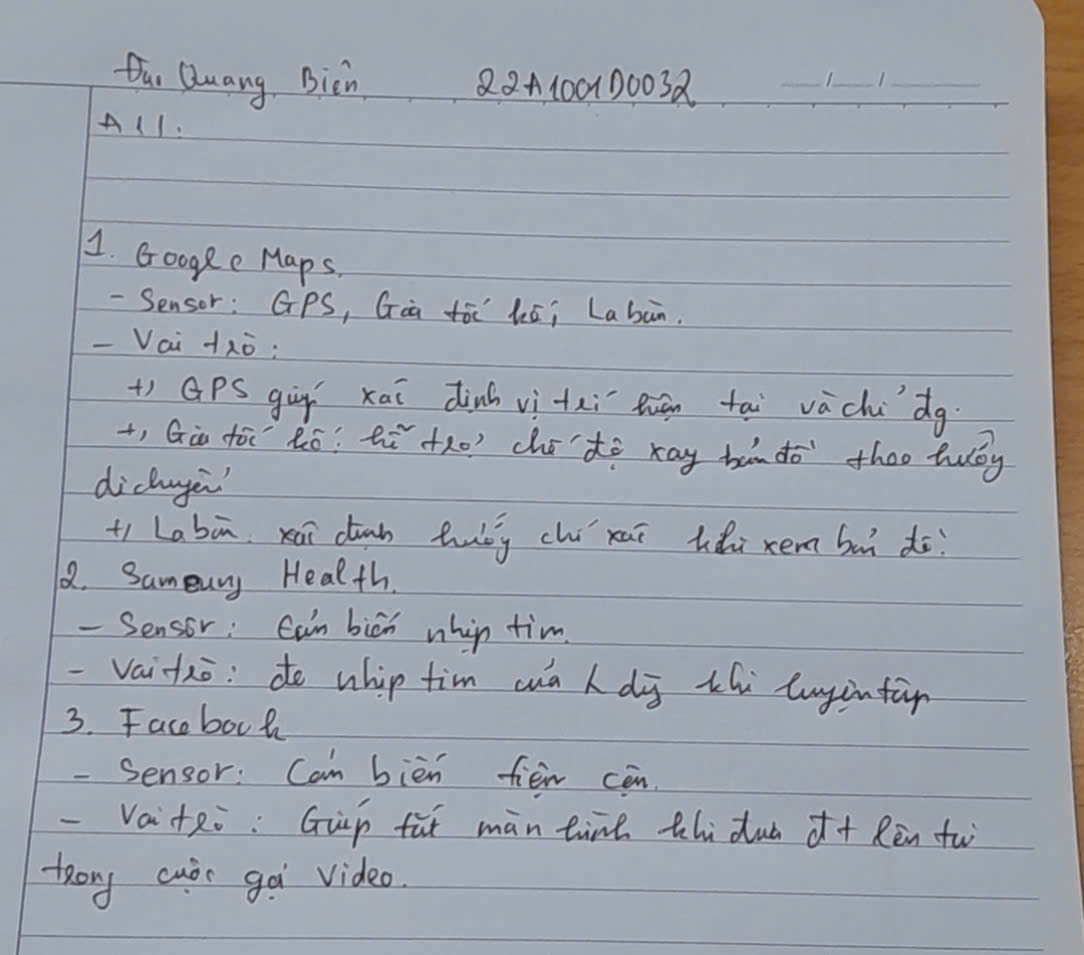 Quang Biên 22A1001D0032 __/__/__
A11:
1. Google Maps.
- Sensor: GPS, Gia tốc kế, La bàn.
- Vai trò:
+) GPS giúp xác định vị trí hiện tại và chỉ đg.
+) Gia tốc kế: hỗ trợ chế độ xay bản đồ theo hướng
di chuyển
+) La bàn. xác định hướng chí xác khi xem bản đồ.
2. Samsung Health.
- Sensor: Cảm biến nhịp tim.
- Vai trò: đo nhịp tim của dùng khi luyện tập
3. Facebook
- Sensor: Cảm biến tiệm cận.
- Vai trò: Giúp tắt màn hình khi đưa đt lên
trong cuộc gọi video.